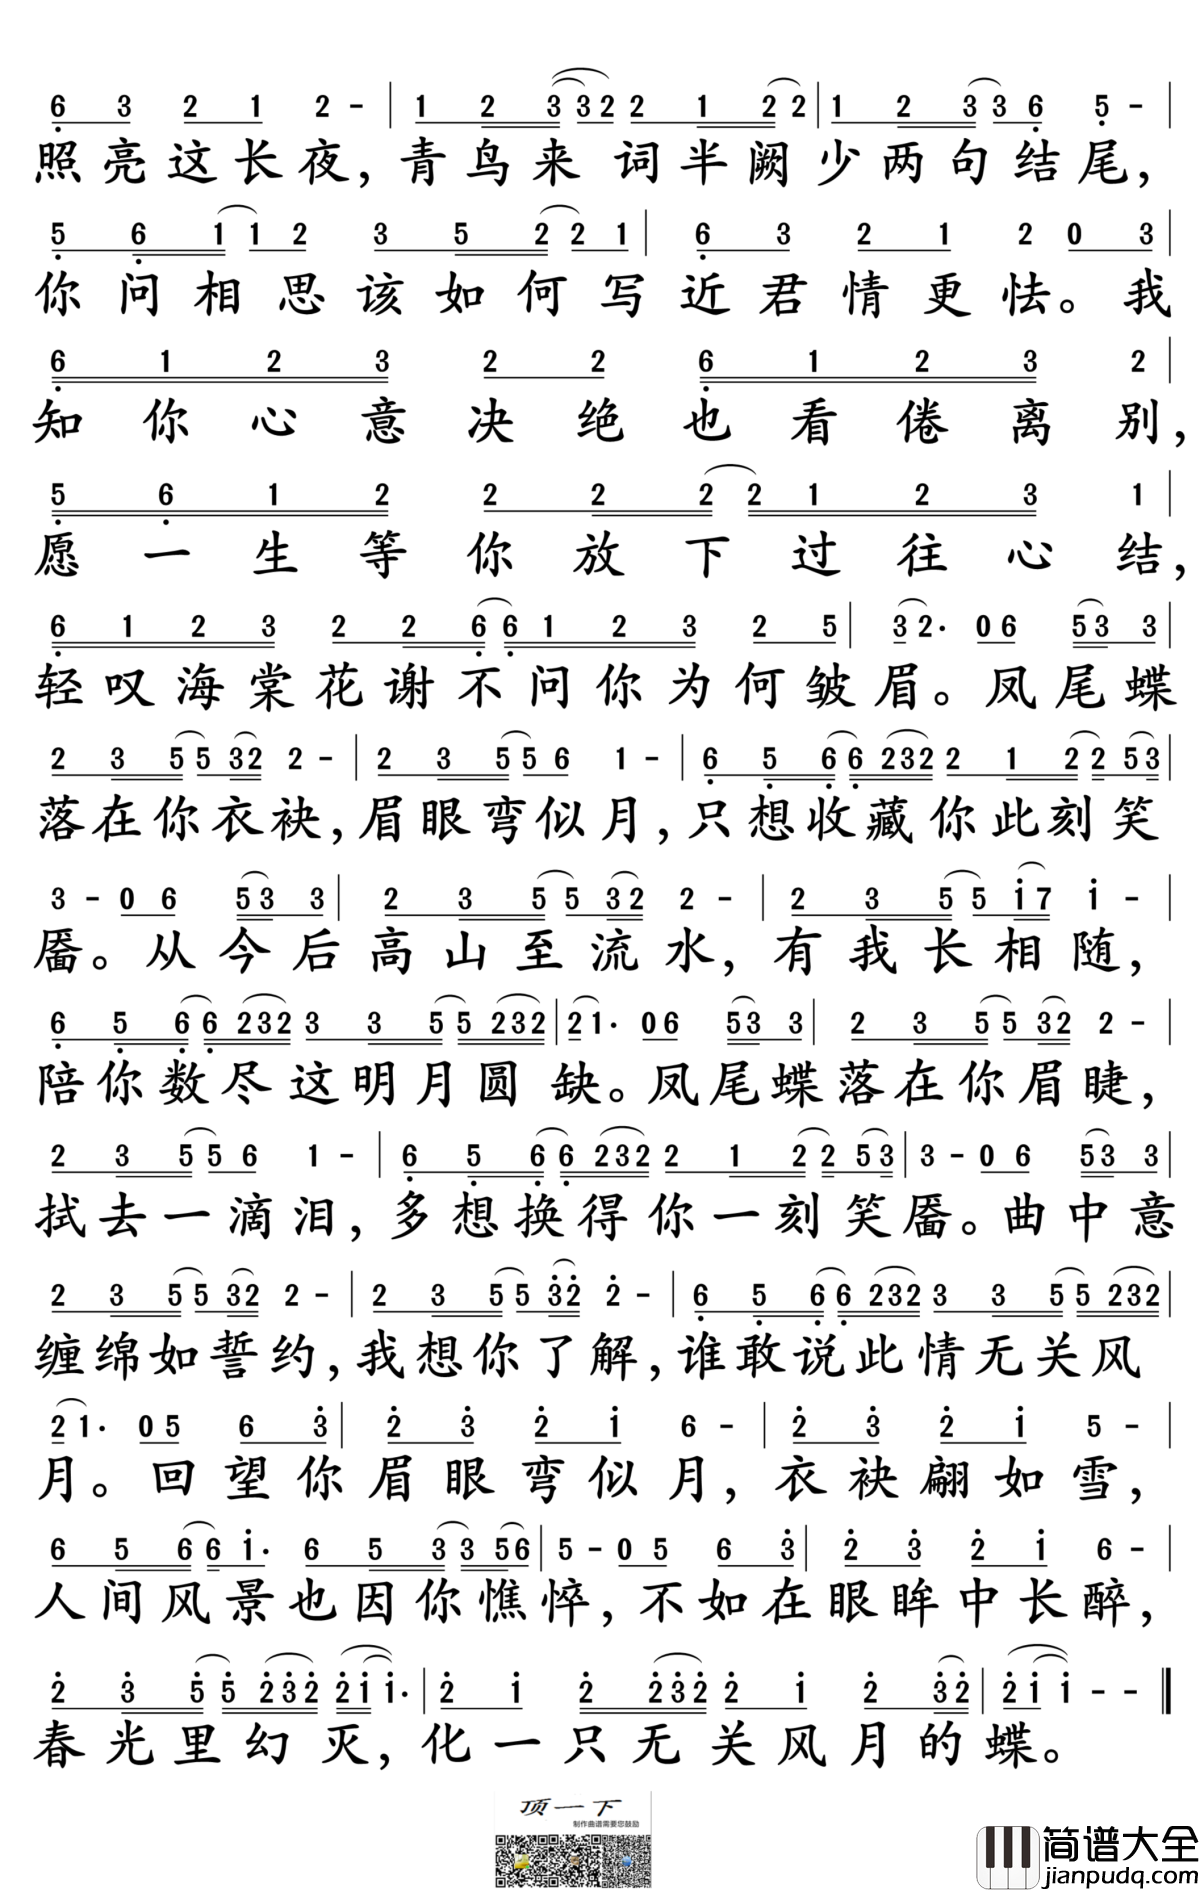 6 3 2 1 2 - | 1 2 3 3 2 2 1 2 2 | 1 2 3 3 6 5 - |
照亮这长夜,青鸟来词半阙少两句结尾,
5 6 1 1 2 3 5 2 2 1 | 6 3 2 1 2 0 3 |
你问相思该如何写近君情更怯。我
6 1 2 3 2 2 6 1 2 3 2 |
知你心意决绝也看倦离别,
5 6 1 2 2 2 2 2 1 2 3 1 |
愿一生等你放下过往心结,
6 1 2 3 2 2 6 6 1 2 3 2 5 | 3 2· 0 6 5 3 3 |
轻叹海棠花谢不问你为何皱眉。凤尾蝶
2 3 5 5 3 2 2 - | 2 3 5 5 6 1 - | 6 5 6 6 2 3 2 2 1 2 2 5 3 |
落在你衣袂,眉眼弯似月,只想收藏你此刻笑
3 - 0 6 5 3 3 | 2 3 5 5 3 2 2 - | 2 3 5 5 1 7 1 - |
靥。从今后高山至流水,有我长相随,
6 5 6 6 2 3 2 3 3 5 5 2 3 2 | 2 1· 0 6 5 3 3 | 2 3 5 5 3 2 2 - |
陪你数尽这明月圆缺。凤尾蝶落在你眉睫,
2 3 5 5 6 1 - | 6 5 6 6 2 3 2 2 1 2 2 5 3 | 3 - 0 6 5 3 3 |
拭去一滴泪,多想换得你一刻笑靥。曲中意
2 3 5 5 3 2 2 - | 2 3 5 5 3 2 2 - | 6 5 6 6 2 3 2 3 3 5 5 2 3 2 |
缠绵如誓约,我想你了解,谁敢说此情无关风
2 1· 0 5 6 3 | 2 3 2 1 6 - | 2 3 2 1 5 - |
月。回望你眉眼弯似月,衣袂翩如雪,
6 5 6 6 1· 6 5 3 3 5 6 | 5 - 0 5 6 3 | 2 3 2 1 6 - |
人间风景也因你憔悴,不如在眼眸中长醉,
2 3 5 5 2 3 2 2 1 1· | 2 1 2 2 3 2 2 1 2 3 2 | 2 1 1 - - ‖
春光里幻灭,化一只无关风月的蝶。
顶一下
制作曲谱需要您鼓励
简谱大全
jianpudq.com